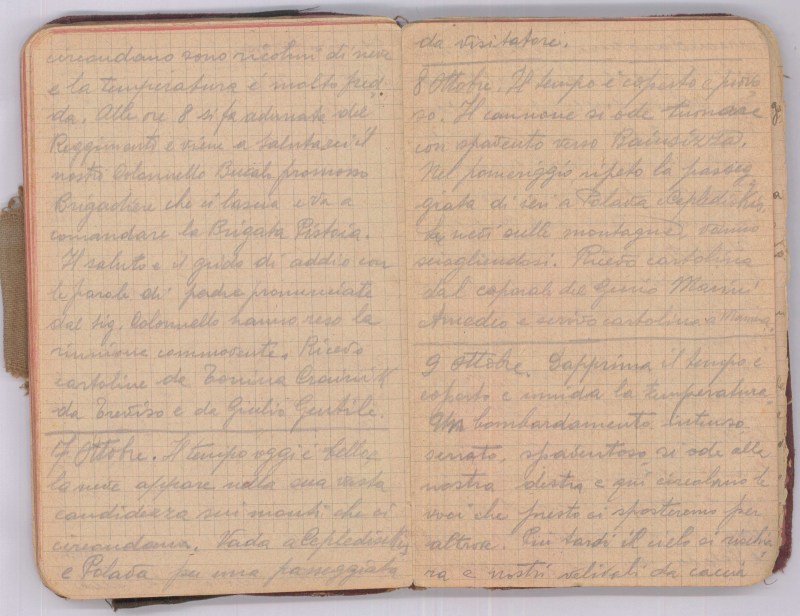 circondano sono ricolmi di neve
e la temperatura é molto fred
da. Alle ore 8 si fa adunata del
Reggimento e viene a salutarci il
nostro Colonnello promosso
Brigadiere che ci lascia e va a
comandare la Brigata Pistoia.
Il saluto e il grido di addio con
le parole di padre pronunciate
dal Sig. Colonnello hanno reso la
riunione commovente. Ricevo
cartoline da Tonina
da Treviso e da Giulio Gentile.
7 Ottobre. Il tempo oggi é bello e
la neve appare nella sua vasta
candidezza sui monti che ci
circondano. Vado a
e Polava per una passeggiata
da visitatore.
8 Ottobre. Il tempo é coperto e piovo
so. Il cannone si ode tuonare
con spavento verso Bainsizza.
Nel pomeriggio ripeto la passeg
giata di ieri a Polava
Le nevi sulle montagne vanno
sciogliendosi. Ricevo cartolina
dal caporale del Genio Marini
Amedeo e scrivo cartolina a Mamma.
9 Ottobre. Dapprima il tempo é
coperto e umida la temperatura
Un bombardamento intenso
serrato, spaventoso si ode alla
nostra destra e qui circolano le
voci che presto ci sposteremo per
altrove. Più tardi il cielo si rischia
ra e nostri velivoli da caccia